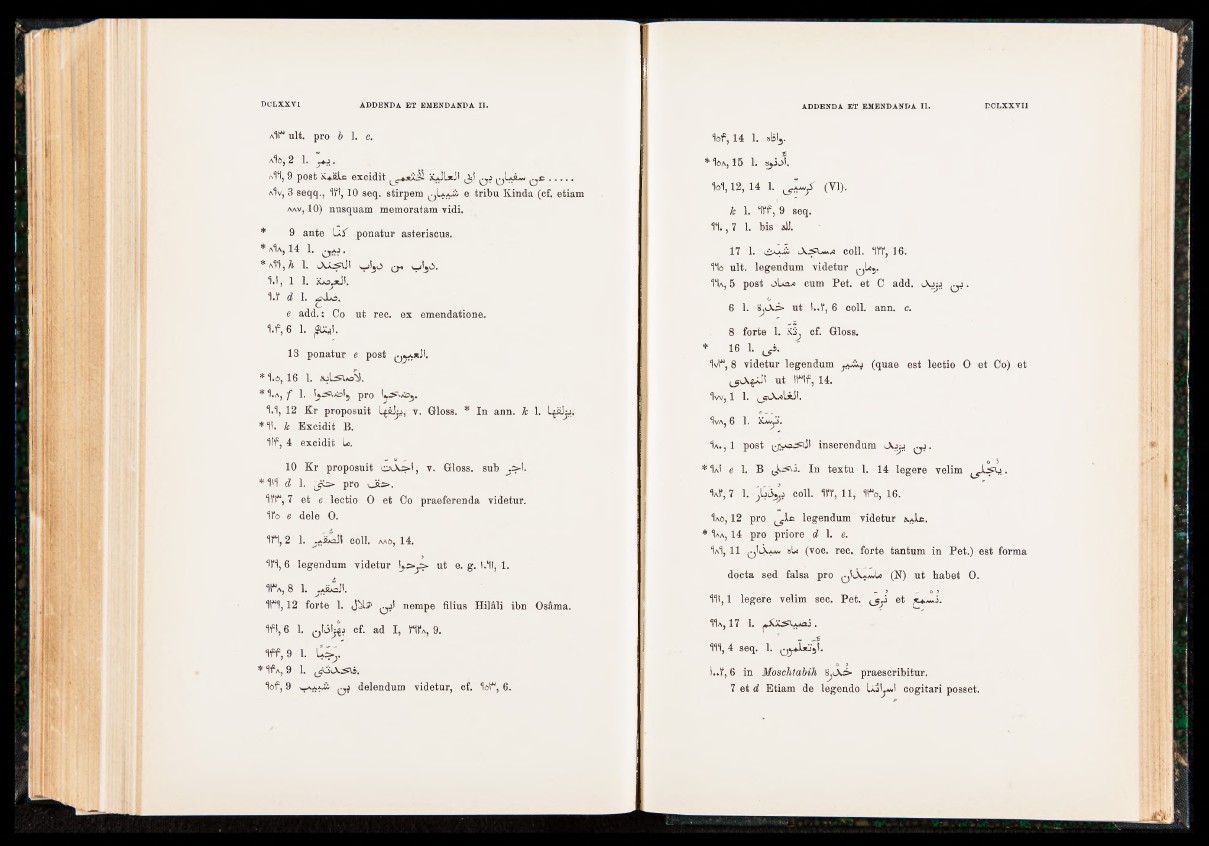 DCLXXVI ADDENDA ET EMENDANDA II.
٨٩٣ ult. pro b l. c.
٨٩٥, 2 l.
٨٩٦, 9 post علقمة excidit عن سفيان بن ابى العالية الخثعمى .....
٨٩٧, 3 seqq., 10 seq. stirpem شيبان e tribu Kinda (cf. etiam
٨٨٧, 10) nusquam memoratam vidi.
* 9 ante كنّا ponatur asteriscus.
* ٨٩٨, 14 l. بيبن.
* ٨٩٩, h l. دواب من دواب الجند.
٩٠١, 1 l. العرصة.
٩٠٢ d l. صلح.
e add.: Co ut rec. ex emendatione.
٩٠٤, 6 l.
13 ponatur e post العيون.
* ٩٠٥, 16 l. لاصحابه.
* ٩٠٨, f l. واضحوا pro وضحوا.
٩٠٩, 12 Kr proposuit يزلفها, v. Gloss. * In ann. k l. يزلفها.
* ٩١٠ k Excidit B.
٩١٤, 4 excidit ما.
10 Kr proposuit اجدت, v. Gloss. sub اجر.
* ٩١٩ d l. حتى pro حقف.
٩٢٣, 7 et c lectio O et Co praeferenda videtur.
٩٢٥ e dele O.
٩٣١, 2 l. الصُّقَير coll. ٨٨٥, 14.
٩٣٦, 6 legendum videtur جُرحوا ut e. g. 1.
٩٣٨, 8 l. الصُّقير.
٩٣٩, 12 forte l. ابن هلال nempe filius Hilâli ibn Osâma.
٩٤١, 6 l. بهزاذان cf. ad I, 9.
٩٤٤, 9 l. رَجَبًا.
* ٩٤٨, 9 l. فحدثنى.
٩٥٤, 9 بن شبيب delendum videtur, cf. ٩٥٣, 6.
ADDENDA ET EMENDANDA II. DCLXXVII
٩٥٤, 14 l. وافاه.
* ٩٥٨, 15 l.
٩٥٩, 12, 14 l. كرسيّى (VI).
k l. 9 seq.
٩٦٠, 7 l. bis الله.
17 l. مسجد شَبَث coll. 16.
٩٦٥ ult. legendum videtur ومان.
٩٦٨, 5 post مصاد cum Pet. et C add. بن يزيد.
6 l. خُدْرة ut ١٠٠٢, 6 coll. ann. c.
8 forte l. رثّة cf. Gloss.
* 16 l. فى.
٩٧٣, 8 videtur legendum بشير (quae est lectio O et Co) et
النهدى ut 14.
٩٧٧, 1 l. الغامدى.
٩٧٨, 6 l.
٩٨٠, 1 post الحصين inserendum بن يزيد.
* ٩٨١ e l. B نجلى. In textu l. 14 legere velim يُنْجِلى.
٩٨٢, 7 l. بزوذبار coll. 11, 16.
٩٨٥, 12 pro على legendum videtur عليه.
* ٩٨٨, 14 pro priore d l. e.
٩٨٩, 11 ماه سبذان (voc. rec. forte tantum in Pet.) est forma
docta sed falsa pro ماسبذان (N) ut habet O.
٩٩١, 1 legere velim sec. Pet. نُرى et نُسْمِع.
٩٩٨, 17 l. نصيحتكم.
٩٩٩, 4 seq. l. أوتعلمون.
١٠٠٢, 6 in Moschtabih خُدْرة praescribitur.
7 et d Etiam de legendo اسرائنا cogitari posset.